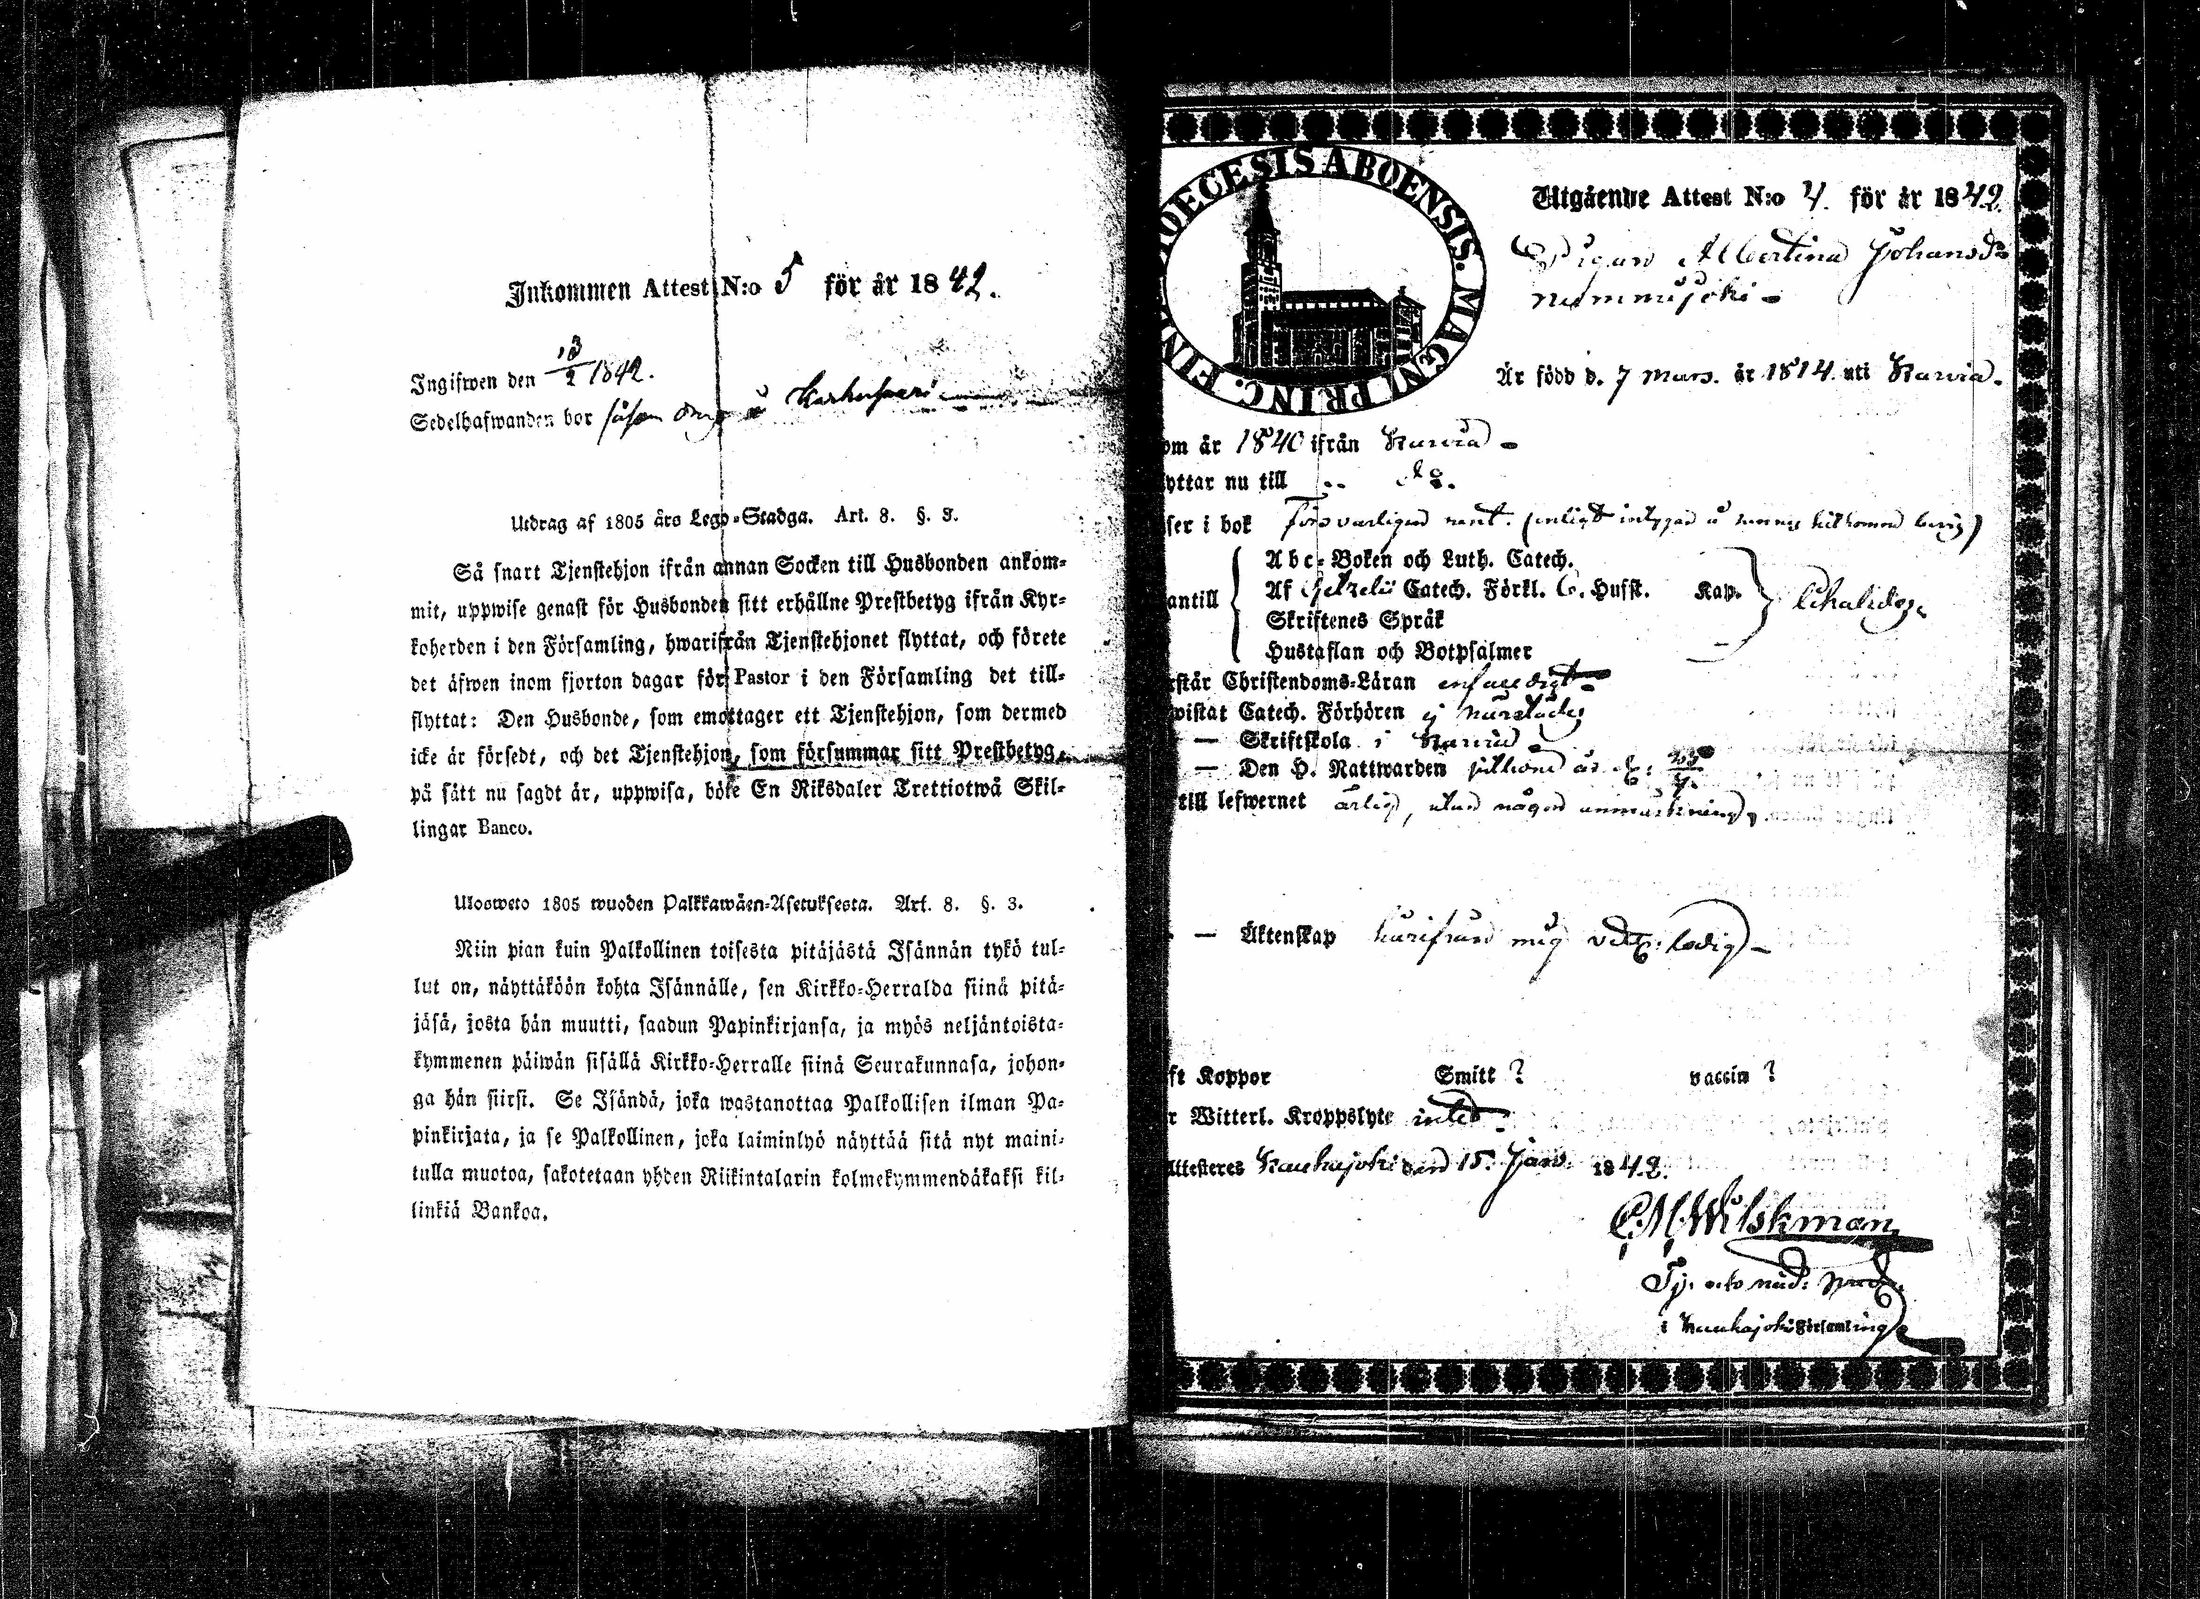 Inkommen Attest N:o 5 för år 1842.
Ingifwen den 13/2 1842.
Sedelhafwanden bor såsom å
Utdrag af 1805 års Lego-Stadga. Art. 8. §. 3.
Så snart Tjenstehjon ifrån annan Socken till Husbonden ankom-
mit, uppwise genast för Husbonden sitt erhållne Prestbetyg ifrån Kyr-
koherden i den Församling, hwarifrån Tjenstehjonet flyttat, och förete
det äfwen inom fjorton dagar för Pastor i den Församling det till-
flyttat: Den Husbonde, som emottager ett Tjenstehjon, som dermed
icke är försedt, och det Tjenstehjon, som försummar sitt Prestbetyg,
på sätt nu sagdt är, uppwisa, böte En Riksdaler Trettiotwå Skil-
lingar Banco.
Ulosweto 1805 wuoden Palkkawäen-Asetuksesta. Art. 8. §. 3.
Niin pian kuin Palkollinen toisesta pitäjästä Isännän tykö tul-
lut on, näyttäköön kohta Isännälle, sen Kirkko-Herralda siinä pitä-
jäsä, josta hän muutti, saadun Papinkirjansa, ja myös neljäntoista-
kymmenen päiwän sisällä Kirkko-Herralle siinä Seurakunnasa, johon-
ga hän siirsi. Se Isändä, joka wastanottaa Palkollisen ilman Pa-
pinkirjata, ja se Palkollinen, joka laiminlyö näyttää sitä nyt maini-
tulla muotoa, sakotetaan yhden Riikintalarin kolmekymmendäkaksi kil-
linkiä Bankoa.
DIOECESIS ABOENSIS. MAGNI PRINC. FIN
Utgående Attest N:o 4. för år 1842
Pigan Albertina Johansdr
Nummijoki
Är född d. 7 Mars. år 1814. uti Karvia.
om år 1840 ifrån Karvia
yttar nu till do.
ser i bok Försvarligen
Abc-Boken och Luth. Catech.
antill Af Gezelii Catech. Förkl. 6. Hufst. Kap.
Skriftenes Språk
Hustaflan och Botpsalmer
rstår Christendoms-Läran enfaldigt
wistat Catech. Förhören ej härstädes
— Skriftskola i Karvia
— Den H. Nattwarden sistone är
till lefwernet ärlig, utan någon anmärkning,
— Äktenskap härifrån mig ledig
ft Koppor Smitt ? vaccin ?
r Witterl. Kroppslyte intet
Attesteres Kauhajoki den 15. Jan. 1842.
C. M. Wilskman
Tj. och nåd: pred.
i Kauhajoki Församling